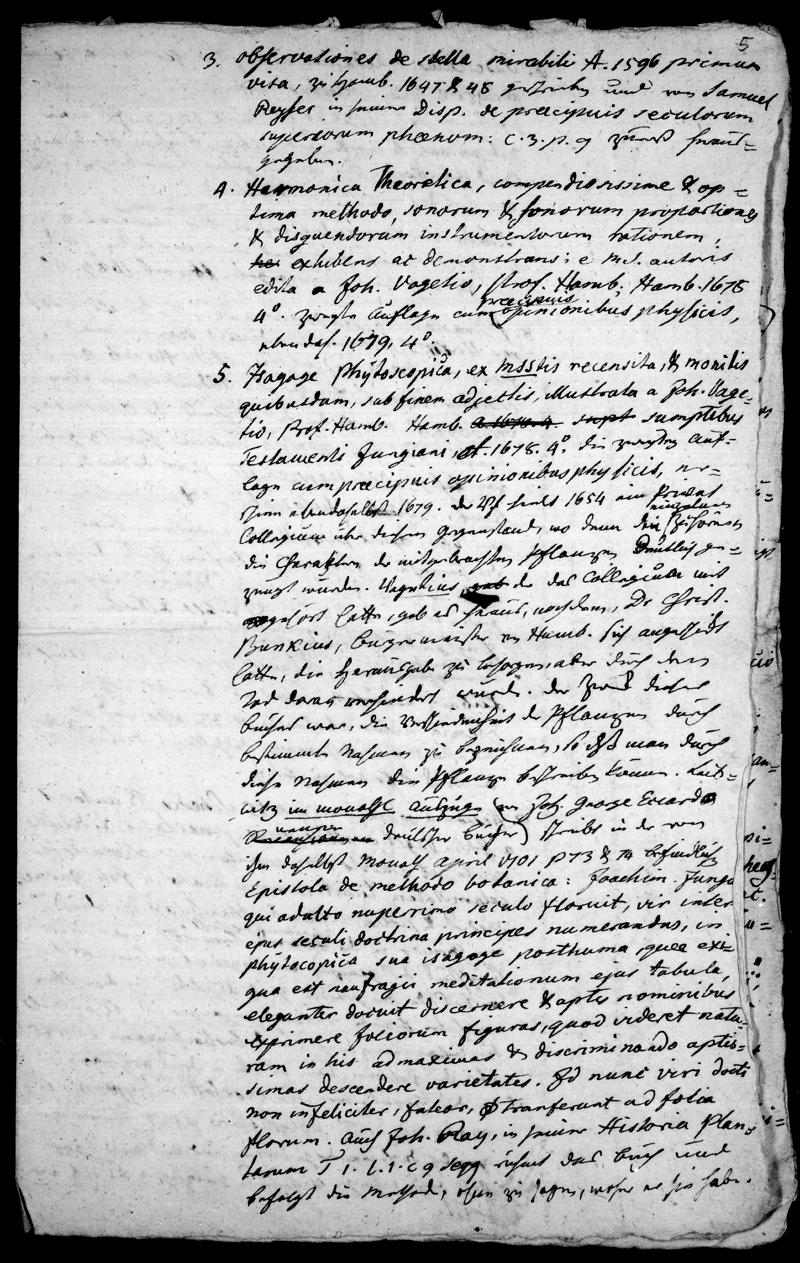 5
3. observationes de stella mirabili A. 1596 primum
visa, zu Hamb. 1647 & 48 geschrieben und von Samuel
Reyher in seiner Disp. de præcipuis seculorum
superiorum phænom: c. 3. p. 9 zuerst heraus=
gegeben.
4. Harmonica Theoretica, compendiosissime & op=
tima methodo, sonorum & sonorum proportiones
& disquendorum instrumentorum rationem,
exhibens ac demonstrans; e M.S. autoris
edita a Joh. Vagetio, Prof. Hamb. Hamb. 1678
4°. zweyte Auflage cum præcipuis opinionibus physicis,
ebendas. 1679, 4°.
5. Isagoge Phytoscopica, ex msstis recensita, & monitis
quibusdam, sub finem adjectis, illustrata a Joh. Vage=
tio, Prof. Hamb. Hamb. sumptibus
Testamenti Jungiani, A. 1678. 4°. die zweyte Auf=
lage cum præcipuis opinionibus physicis, er=
schien ebendaselbst 1679. der Vf hielt 1654 ein Privat
Collegium über diesen Gegenstand, wo denn die einzelnen
die Charaktere der mitgebrachten Pflanzen deutlich ge=
zeigt wurden. Vagetius, der das Collegium mit
angehört hatte, gab es heraus, nachdem, Dr Christ.
Bunkius, Bürgermeister in Hamb. sich
hatte, die Herausgabe zu besorgen, aber durch den
Tod daran verhindert wurde. der Zweck dieses
Buches war, die Verschiedenheit der Pflanzen durch
bestimmte Nahmen zu bezeichnen, so daß man durch
diese Nahmen die Pflanze beschreiben könne. Leib=
nitz im monathl. Auszuge (von Joh. George Eccard
neuer deutscher Bücher) schreibt in der von
ihm daselbst Monath April 1701 p 73 & 74 befindlich
Epistola de methodo botanica: Joachim. Jungi
qui adulto nuperrimo seculo floruit, vir inter
ejus seculi doctrina principes numerandus, in
phytocopica sua isagoge posthuma, quæ exi=
gua est naufragii meditationum ejus tabula,
eleganter docuit discernere & aptis nominibus
exprimere foliorum figuras, quod videret natu=
ram in his ad maximas & discriminando aptis=
simas descendere varietates. Id nunc viri docti
non infeliciter, fateor, tranferunt ad folia
florum. Auch Joh. Ray, in seiner Historia Plan=
tarum T 1. L. 1. c 9 seqq. rühmt das Buch und
befolgt die Methode, ohne zu sagen, woher er sie habe.